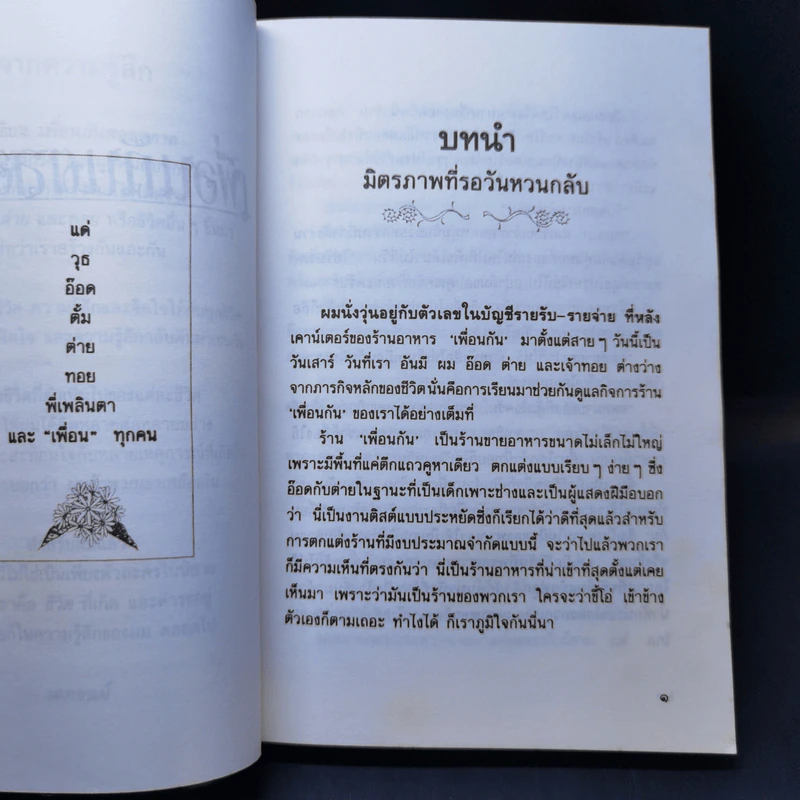 แด่
วุธ
อ๊อด
ตั้ม
ต่าย
ทอย
พี่เพลินตา
และ "เพื่อน" ทุกคน
บทนำ
มิตรภาพที่รอวันหวนกลับ
ผมนั่งวุ่นอยู่กับตัวเลขในบัญชีรายรับ-รายจ่าย ที่หลัง
เคาน์เตอร์ของร้านอาหาร 'เพื่อนกัน' มาตั้งแต่สายๆ วันนี้เป็น
วันเสาร์ วันที่เรา อันมี ผม อ๊อด ต่าย และเจ้าทอย ต่างว่าง
จากภารกิจหลักของชีวิตนั่นคือการเรียนมาช่วยกันดูแลกิจการร้าน
'เพื่อนกัน' ของเราได้อย่างเต็มที่
ร้าน 'เพื่อนกัน' เป็นร้านขายอาหารขนาดไม่เล็กไม่ใหญ่
เพราะมีพื้นที่แค่ตึกแถวคูหาเดียว ตกแต่งแบบเรียบๆ ง่ายๆ ซึ่ง
อ๊อดกับต่ายในฐานะที่เป็นเด็กเพาะช่างและเป็นผู้แสดงฝีมือบอก
ว่า นี่เป็นงานติสต์แบบประหยัดซึ่งก็เรียกได้ว่าดีที่สุดแล้วสำหรับ
การตกแต่งร้านที่มีงบประมาณจำกัดแบบนี้ จะว่าไปแล้วพวกเรา
ก็มีความเห็นที่ตรงกันว่า นี่เป็นร้านอาหารที่น่าเข้าที่สุดตั้งแต่เคย
เห็นมา เพราะว่ามันเป็นร้านของพวกเรา ใครจะว่าขี้โอ่ เข้าข้าง
ตัวเองก็ตามเถอะ ทำไงได้ ก็เราภูมิใจกันนี่นา
๑